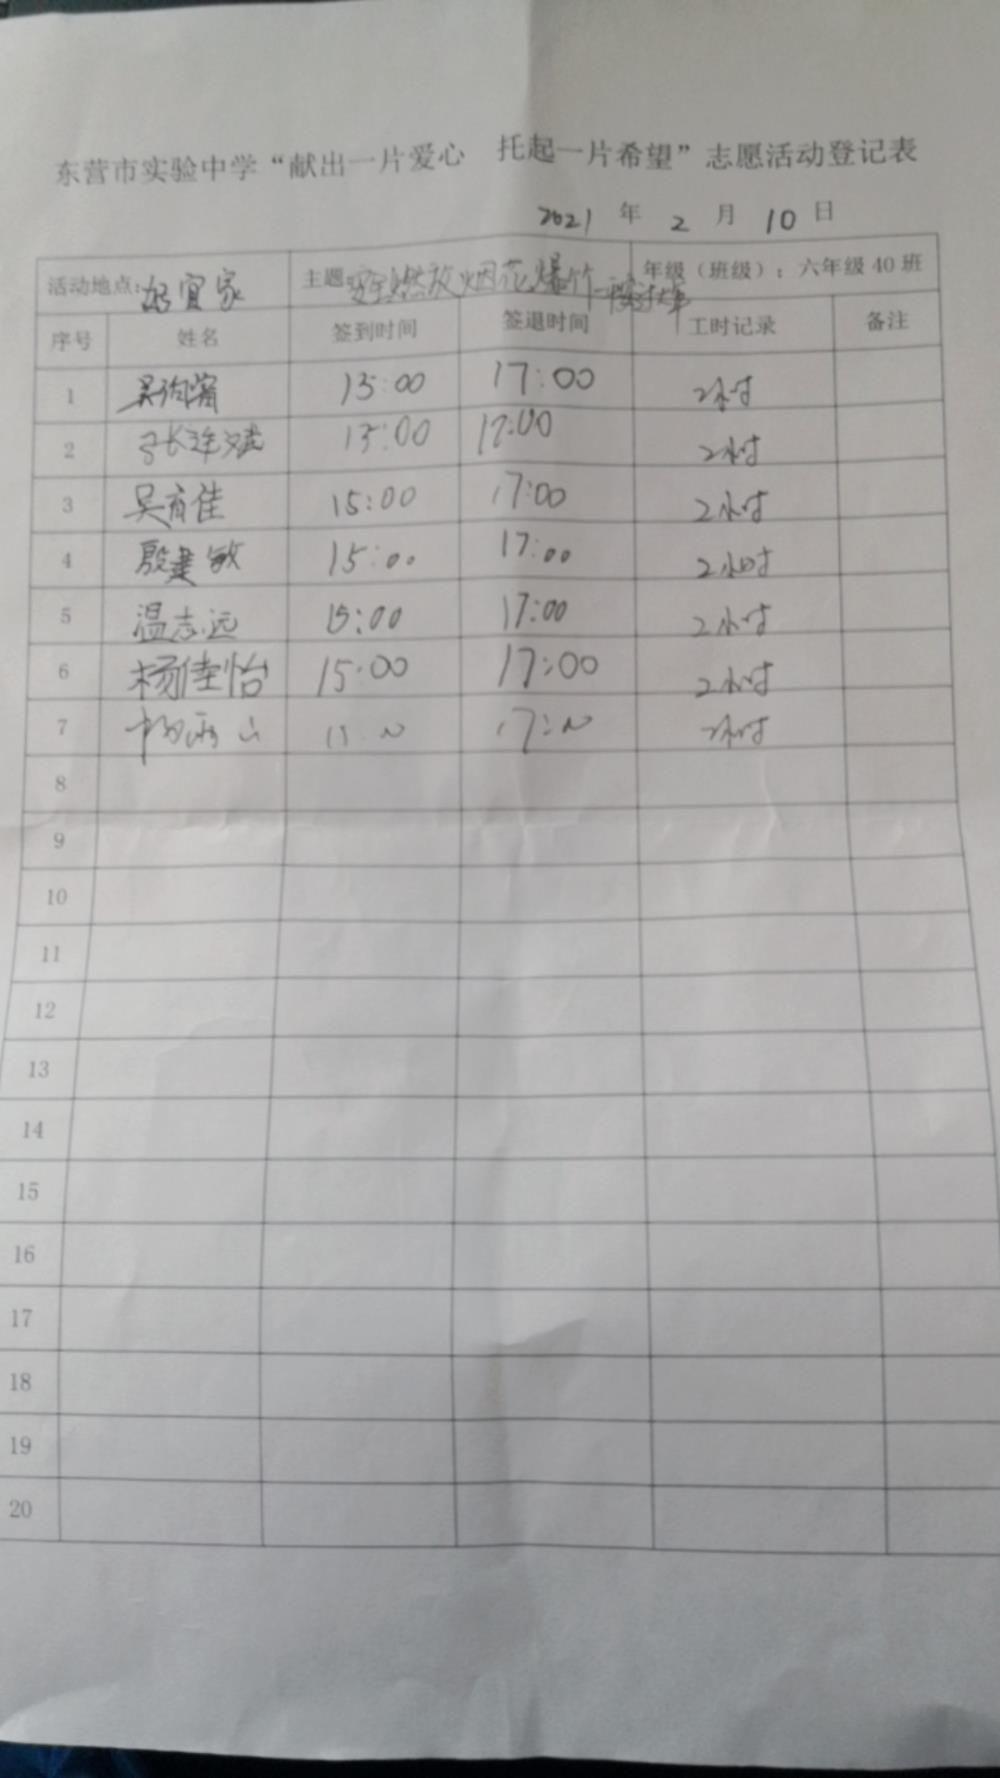 东营市实验中学“献出一片爱心 托起一片希望”志愿活动登记表
2021 年 2 月 10 日
活动地点: 宜家 主题: 燃放烟花爆竹 年级（班级）：六年级 40 班
序号 姓名 签到时间 签退时间 工时记录 备注
1 15:00 17:00 2小时
2 15:00 17:00 2小时
3 吴有佳 15:00 17:00 2小时
4 殷建敏 15:00 17:00 2小时
5 温志远 15:00 17:00 2小时
6 杨佳怡 15:00 17:00 2小时
7 2小时
8
9
10
11
12
13
14
15
16
17
18
19
20